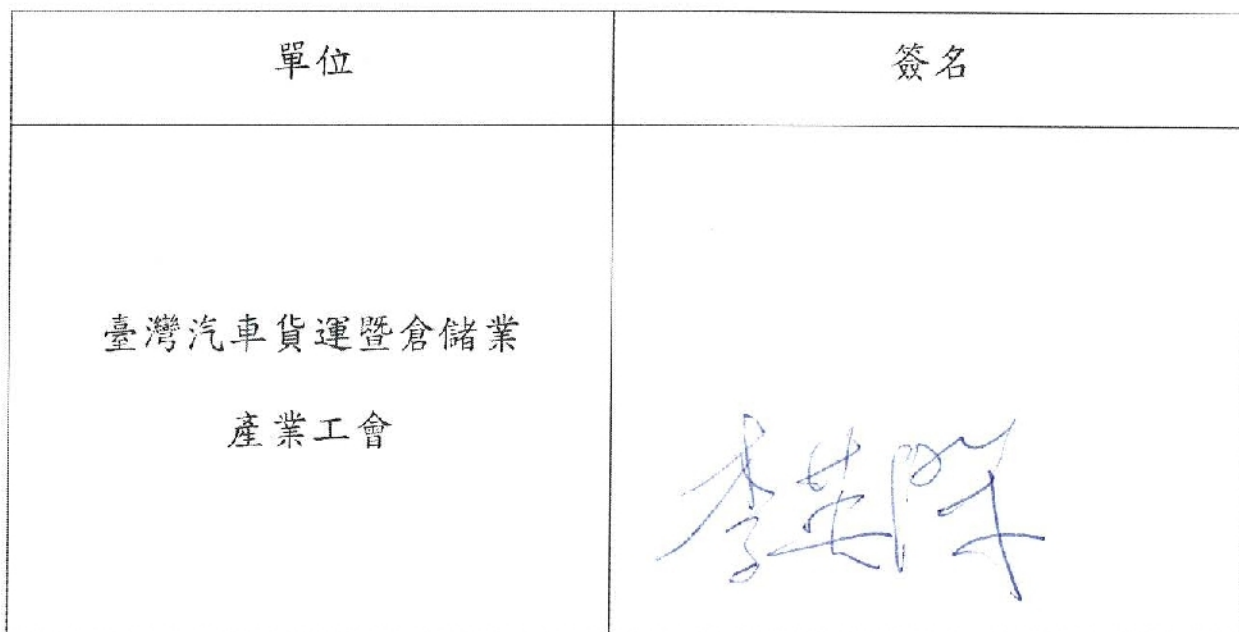 單位
簽名
臺灣汽車貨運暨倉儲業
產業工會
李英